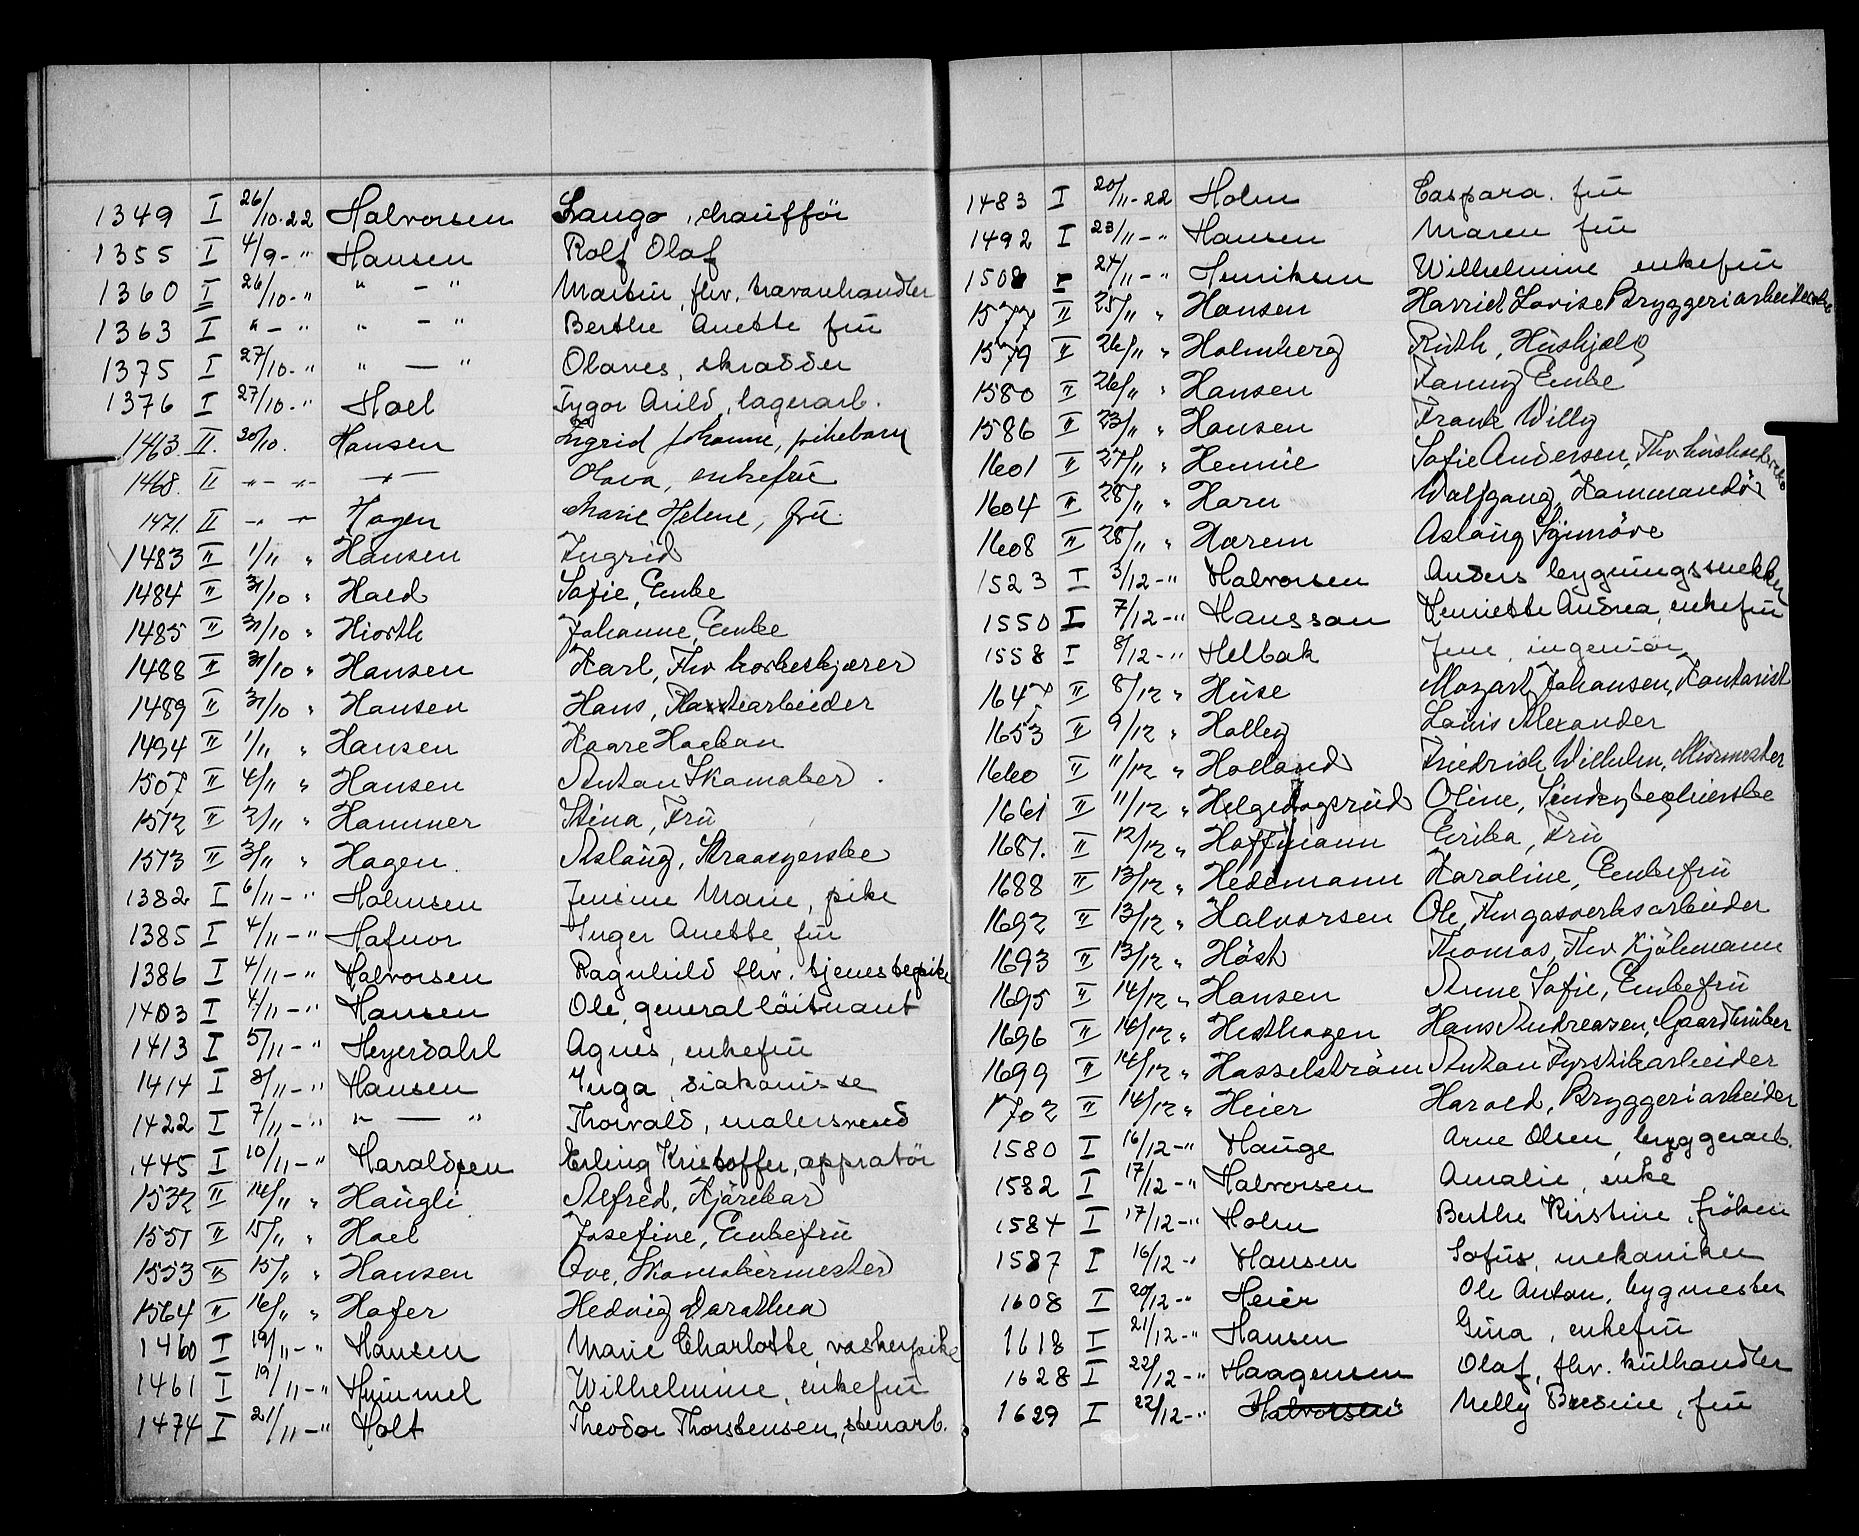 1349 I 26/10-22 Halvorsen Lango, chaufför
1355 I 4/9-" Hansen Rolf Olaf
1360 I 26/10-" " - " Martin, fhv. trævarehandler
1363 I " - " " - " Berthe Anette frü
1375 I 27/10-" " — " Olaves, skrædder
1376 I 27/10-" Hoel Trygve Arild, lagerarb.
1463. II. 30/10. Hansen Ingrid Johanne, pikebarn
1468. II -"- -"- -"- Olava, enkefrü
1471. II -"- -"- Hagen Marie Helene, frü.
1483 II 1/11 " Hansen Ingrid
1484 II 31/10 " Hald Sofie, Enke
1485 II 31/10 " Hiorth Johanne, Enke
1488 II 31/10 " Hansen Karl, Fhv korkeskjærer
1489 II 31/10 " Hansen Hans, arbeider
1494 II 1/11 " Hansen Kaare Haakon
1507 II 4/11 " Hansen Anton Skomaker
1512 II 2/11 " Hammer Stina, Frü
1513 II 3/11 " Hagen. Aslaüg, Straasyerske
1382 I 6/11-" Holmsen Jensine Marie, pike
1385 I 4/11-" Hafnor Inger Anette, frü
1386 I 4/11-" Halvorsen Ragnhild fhv. tjenestepike
1403 I 4/11-" Hansen Ole, generalløitnant
1413 I 5/11-" Heyerdahl Agnes, enkefrü
1414 I 8/11-" Hansen Inga, diakonisse
1422 I 7/11-" " — " Thorvald, malersvend
1445 I 10/11-" Haraldsen Erling Kristoffer, oppratör
1532 II 14/11 " Haügli Alfred, Kjörekar
1551 II 15/11 " Hoel Josefine, Enkefrü
1553 II 15/11 " Hansen Ove, Skomakermester
1564 II 16/11 " Hofer Hedvig Dorothea
1460 I 19/11-" Hansen Marie Charlotte, vaskerpike
1461 I 19/11-" Hummel Wilhelmine, enkefrü
1474 I 21/11-" Holt Theodor Thorstensen, stenarb.
1483 I 20/11-22 Holm Caspara. frü
1492 I 23/11-" Hansen Maren frü
1508 I 24/11-" Henriksen Wilhelmine enkefrü
1577 II 25/11 " Hansen Harriet Lovise Bryggeriarbeiderske
1579 II 26/11 " Holmberg Rüth, Hüshjelp
1580 II 26/11 " Hansen Fanny Enke
1586 II 23/11 " Hansen Frank Willy
1601 II 27/11 " Hennie Sofie Andersen, Fhv
1604 II 28/11 " Horn Wolfgang, Kommandör
1608 II 28/11 " Hærem Aslaüg Synnöve
1523 I 3/12-" Halvorsen Anders bygningssnekker
1550 I 7/12-" Hansson Henriette Andrea, enkefrü
1558 I 8/12-" Helbak Jens, ingeniör
1647 II 8/12 " Hüse Mozart Johansen, Kontorist
1653 II 9/12 " Holley Loüis Alexander
1660 II 11/12 " Holland Friedrich Wilhelm, Mürmester
1661 II 11/12 " Helgedagsrüd Oline, Sinders
1687. II 12/12 " Hoffmann Erika, Frü
1688 II 13/12 " Hedemann Karoline, Enkefrü
1692 II 13/12 " Halvorsen Ole, Fhv gasverksarbeider
1693 II 13/12 " Höst Thomas, Fhv Kjöbmann
1695 II 14/12 " Hansen Anne Sofie, Enkefrü
1696 II 14/12 " Hesthagen Hans Andreasen, Gaardbrüker
1699 II 14/12 " Hasselström Anton Fyrstikarbeider
1702 II 14/12 " Heier Harald, Bryggeriarbeider
1580 I 16/12-" Haüge Arne Olsen, bryggerarb.
1582 I 17/12-" Halvorsen Amalie, enke
1584 I 17/12-" Holm Berthe Kirstine, fröken
1587 I 16/12-" Hansen Sofüs, mekaniker
1608 I 20/12-" Heier Ole Anton, bygmester
1618 I 21/12-" Hansen Gina, enkefrü
1628 I 22/12-" Haagensen Olaf, fhv. külhandler
1629 I 22/12-" Halvorsen Nelly Bredine, frü